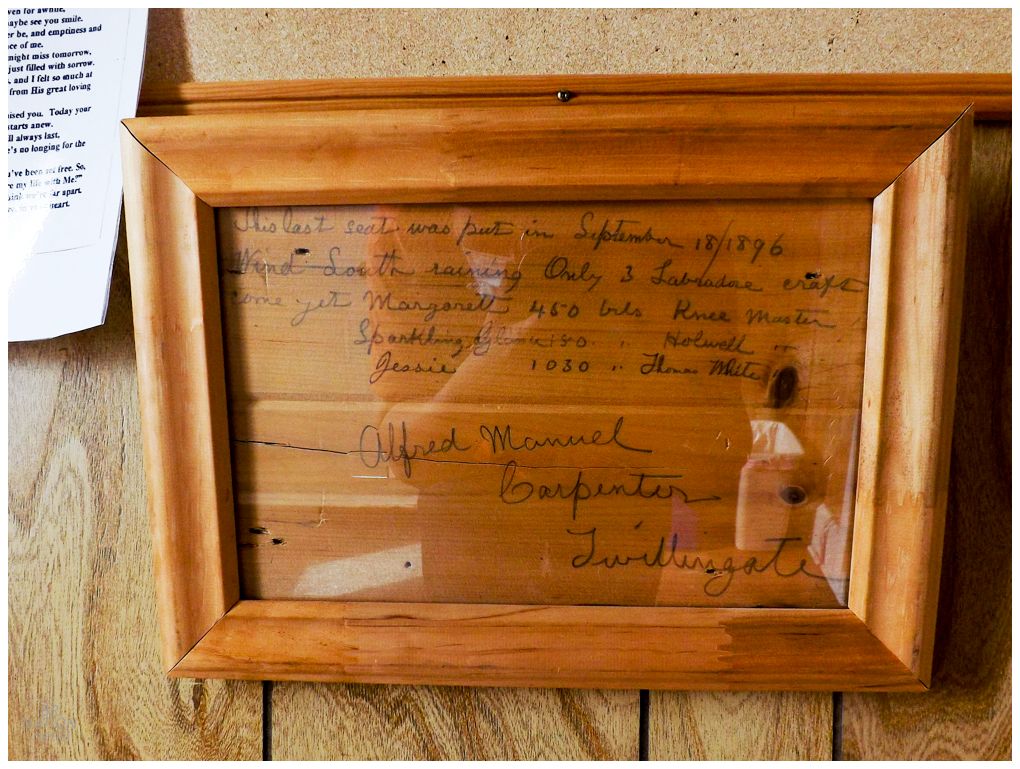 ven for awhile,
maybe see you smile.
er be, and emptiness and
ce of me.
might miss tomorrow,
just filled with sorrow.
, and I felt so much at
from His great loving
ised you. Today your
starts anew.
ll always last,
e's no longing for the
u've been set free. So,
re my life with Me?"
far apart,
heart.
This last seat was put in September 18/1896
Wind South raining Only 3 Labradore craft
come yet Margarett 450 brls Knee Master
Sparkling Glance 180 " Holwell "
Jessie 1030 " Thomas White "
Alfred Manuel
Carpenter
Twillingate